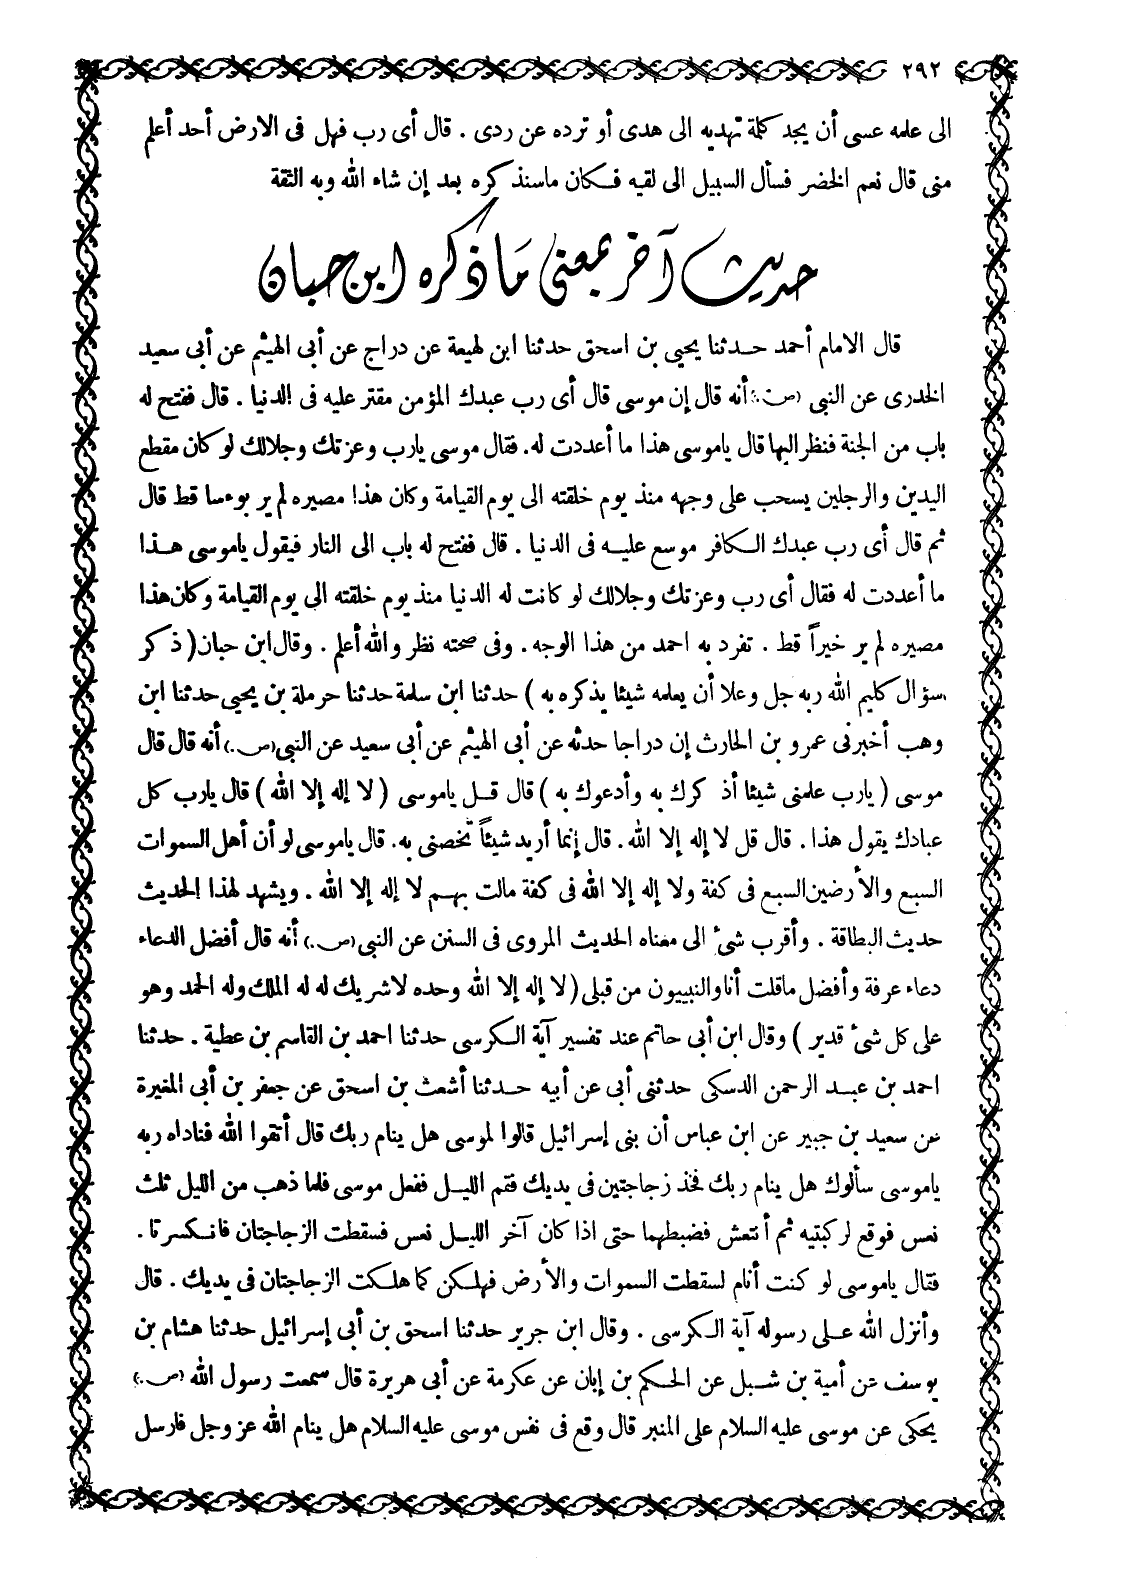 ٢٩٢
الى علمه عسى أن يجد كلمة تهديه الى هدى أو ترده عن ردى . قال أى رب فهل فى الارض أحد أعلم
منى قال نعم الخضر فسأل السبيل الى لقيه فكان ماسنذكره بعد إن شاء الله وبه الثقة
حديث آخر بمعنى ما ذكره ابن حبان
قال الامام أحمد حدثنا يحيى بن اسحق حدثنا ابن لهيعة عن دراج عن أبى الهيثم عن أبى سعيد
الخدرى عن النبى (ص.) أنه قال إن موسى قال أى رب عبدك المؤمن مقتر عليه فى الدنيا . قال ففتح له
باب من الجنة فنظر اليها قال ياموسى هذا ما أعددت له. فقال موسى يارب وعزتك وجلالك لو كان مقطع
اليدين والرجلين يسحب على وجهه منذ يوم خلقته الى يوم القيامة وكان هذا مصيره لم ير بوءسا قط قال
ثم قال أى رب عبدك الكافر موسع عليه فى الدنيا . قال ففتح له باب الى النار فيقول ياموسى هذا
ما أعددت له فقال أى رب وعزتك وجلالك لو كانت له الدنيا منذ يوم خلقته الى يوم القيامة وكان هذا
مصيره لم ير خيراً قط . تفرد به احمد من هذا الوجه . وفى صحته نظر والله أعلم . وقال ابن حبان (ذكر
سؤال كليم الله ربه جل وعلا أن يعلمه شيئا يذكره به ) حدثنا ابن سلمة حدثنا حرملة بن يحيى حدثنا ابن
وهب أخبرنى عمرو بن الحارث إن دراجا حدثه عن أبى الهيثم عن أبى سعيد عن النبى (ص.) أنه قال قال
موسى ( يارب علمنى شيئا أذكرك به وأدعوك به ) قال قل ياموسى ( لا إله إلا الله ) قال يارب كل
عبادك يقول هذا . قال قل لا إله إلا الله. قال إنما أريد شيئاً تخصنى به. قال ياموسى لو أن أهل السموات
السبع والأرضين السبع فى كفة ولا إله إلا الله فى كفة مالت بهم لا إله إلا الله . ويشهد لهذا الحديث
حديث البطاقة . وأقرب شئ الى معناه الحديث المروى فى السنن عن النبى (ص.) أنه قال أفضل الدعاء
دعاء عرفة وأفضل ماقلت أنا والنبييون من قبلى ( لا إله إلا الله وحده لاشريك له له الملك وله الحمد وهو
على كل شئ قدير ) وقال ابن أبى حاتم عند تفسير آية الكرسى حدثنا احمد بن القاسم بن عطية . حدثنا
احمد بن عبد الرحمن الدسكى حدثنى أبى عن أبيه حدثنا أشعث بن اسحق عن جعفر بن أبى المغيرة
عن سعيد بن جبير عن ابن عباس أن بنى إسرائيل قالوا لموسى هل ينام ربك قال أتقوا الله فناداه ربه
ياموسى سألوك هل ينام ربك فخذ زجاجتين فى يديك فقم الليل ففعل موسى فلما ذهب من الليل ثلث
نعس فوقع لركبتيه ثم أنتعش فضبطهما حتى اذا كان آخر الليل نعس فسقطت الزجاجتان فانكسرتا .
فقال ياموسى لو كنت أنام لسقطت السموات والأرض فهلكن كما هلكت الزجاجتان فى يديك . قال
وأنزل الله على رسوله آية الكرسى . وقال ابن جرير حدثنا اسحق بن أبى إسرائيل حدثنا هشام بن
يوسف عن أمية بن شبل عن الحكم بن إبان عن عكرمة عن أبى هريرة قال سمعت رسول الله (ص.)
يحكى عن موسى عليه السلام على المنبر قال وقع فى نفس موسى عليه السلام هل ينام الله عز وجل فارسل